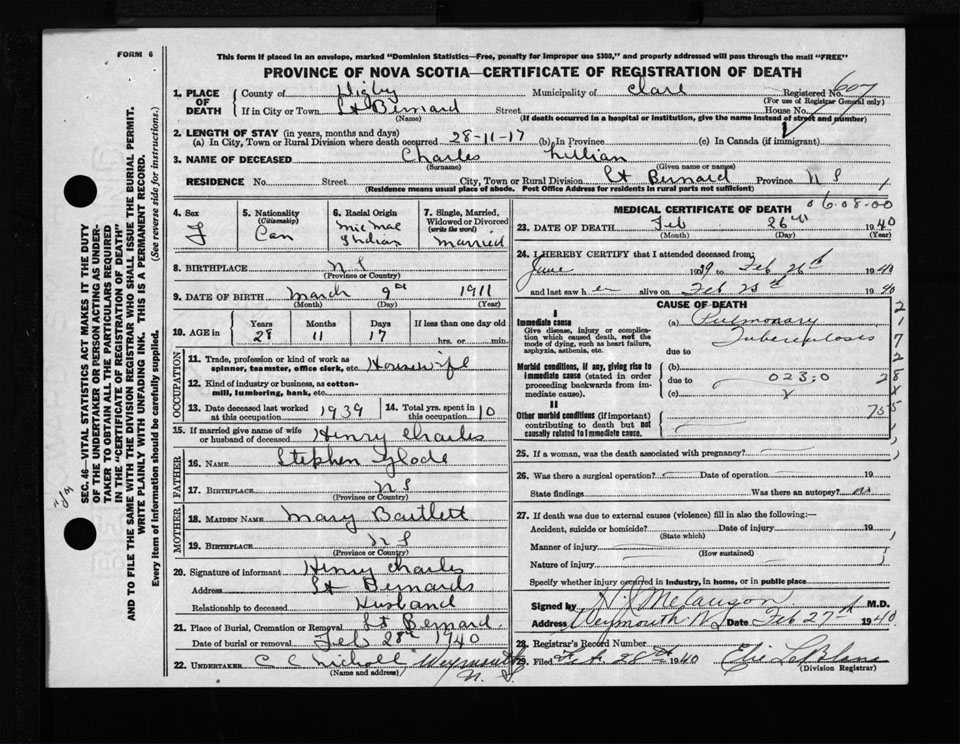 FORM 6
This form if placed in an envelope, marked "Dominion Statistics—Free, penalty for improper use $300," and properly addressed will pass through the mail "FREE"
PROVINCE OF NOVA SCOTIA—CERTIFICATE OF REGISTRATION OF DEATH
607
1. PLACE OF DEATH
County of Digby Municipality of Clare Registered No.
(For use of Registrar General only)
If in City or Town St Bernard Street House No.
(Name) (If death occurred in a hospital or institution, give the name instead of street and number)
2. LENGTH OF STAY (in years, months and days)
(a) In City, Town or Rural Division where death occurred 28-11-17 (b) In Province (c) In Canada (if immigrant)
3. NAME OF DECEASED Charles Lillian
(Surname) (Given name or names)
RESIDENCE No. Street City, Town or Rural Division St Bernard Province N S
(Residence means usual place of abode. Post Office Address for residents in rural parts not sufficient)
4. Sex F
5. Nationality (Citizenship) Can
6. Racial Origin Mic Mac Indian
7. Single, Married, Widowed or Divorced (write the word) Married
8. BIRTHPLACE N S
(Province or Country)
9. DATE OF BIRTH March 9th 1911
(Month) (Day) (Year)
10. AGE in Years 28 Months 11 Days 17 If less than one day old hrs. or min.
OCCUPATION
11. Trade, profession or kind of work as spinner, teamster, office clerk, etc. Housewife
12. Kind of industry or business, as cotton-mill, lumbering, bank, etc.
13. Date deceased last worked at this occupation 1939
14. Total yrs. spent in this occupation 10
15. If married give name of wife or husband of deceased Henry Charles
FATHER
16. Name Stephen Glode
17. Birthplace N S
(Province or Country)
MOTHER
18. Maiden Name Mary Bartlett
19. Birthplace N S
(Province or Country)
20. Signature of informant Henry Charles
Address St Bernards
Relationship to deceased Husband
21. Place of Burial, Cremation or Removal St Bernard
Date of burial or removal Feb 28th 1940
22. UNDERTAKER C C Nicholl Weymouth N. S.
(Name and address)
MEDICAL CERTIFICATE OF DEATH
06.08.00
23. DATE OF DEATH Feb 26th 1940
(Month) (Day) (Year)
24. I HEREBY CERTIFY that I attended deceased from:
June 1939 to Feb 26th 1940
and last saw her alive on Feb 25th 1940
CAUSE OF DEATH
I
Immediate cause
Give disease, injury or complication which caused death, not the mode of dying, such as heart failure, asphyxia, asthenia, etc.
(a) Pulmonary Tuberculosis
due to
Morbid conditions, if any, giving rise to immediate cause (stated in order proceeding backwards from immediate cause).
(b)
due to 023.0
(c) x
II
Other morbid conditions (if important) contributing to death but not causally related to immediate cause.
25. If a woman, was the death associated with pregnancy?
26. Was there a surgical operation? Date of operation 19
State findings Was there an autopsy? no
27. If death was due to external causes (violence) fill in also the following:—
Accident, suicide or homicide? Date of injury 19
(State which)
Manner of injury
(How sustained)
Nature of injury
Specify whether injury occurred in industry, in home, or in public place
Signed by M.D.
Address Weymouth N S Date Feb 27th 1940
28. Registrar's Record Number
29. Filed Feb 28th 1940 Elie LeBlanc
(Division Registrar)
SEC. 46—VITAL STATISTICS ACT MAKES IT THE DUTY
OF THE UNDERTAKER OR PERSON ACTING AS UNDER-
TAKER TO OBTAIN ALL THE PARTICULARS REQUIRED
IN THE "CERTIFICATE OF REGISTRATION OF DEATH"
AND TO FILE THE SAME WITH THE DIVISION REGISTRAR WHO SHALL ISSUE THE BURIAL PERMIT.
WRITE PLAINLY WITH UNFADING INK. THIS IS A PERMANENT RECORD.
Every item of information should be carefully supplied. (See reverse side for instructions.)